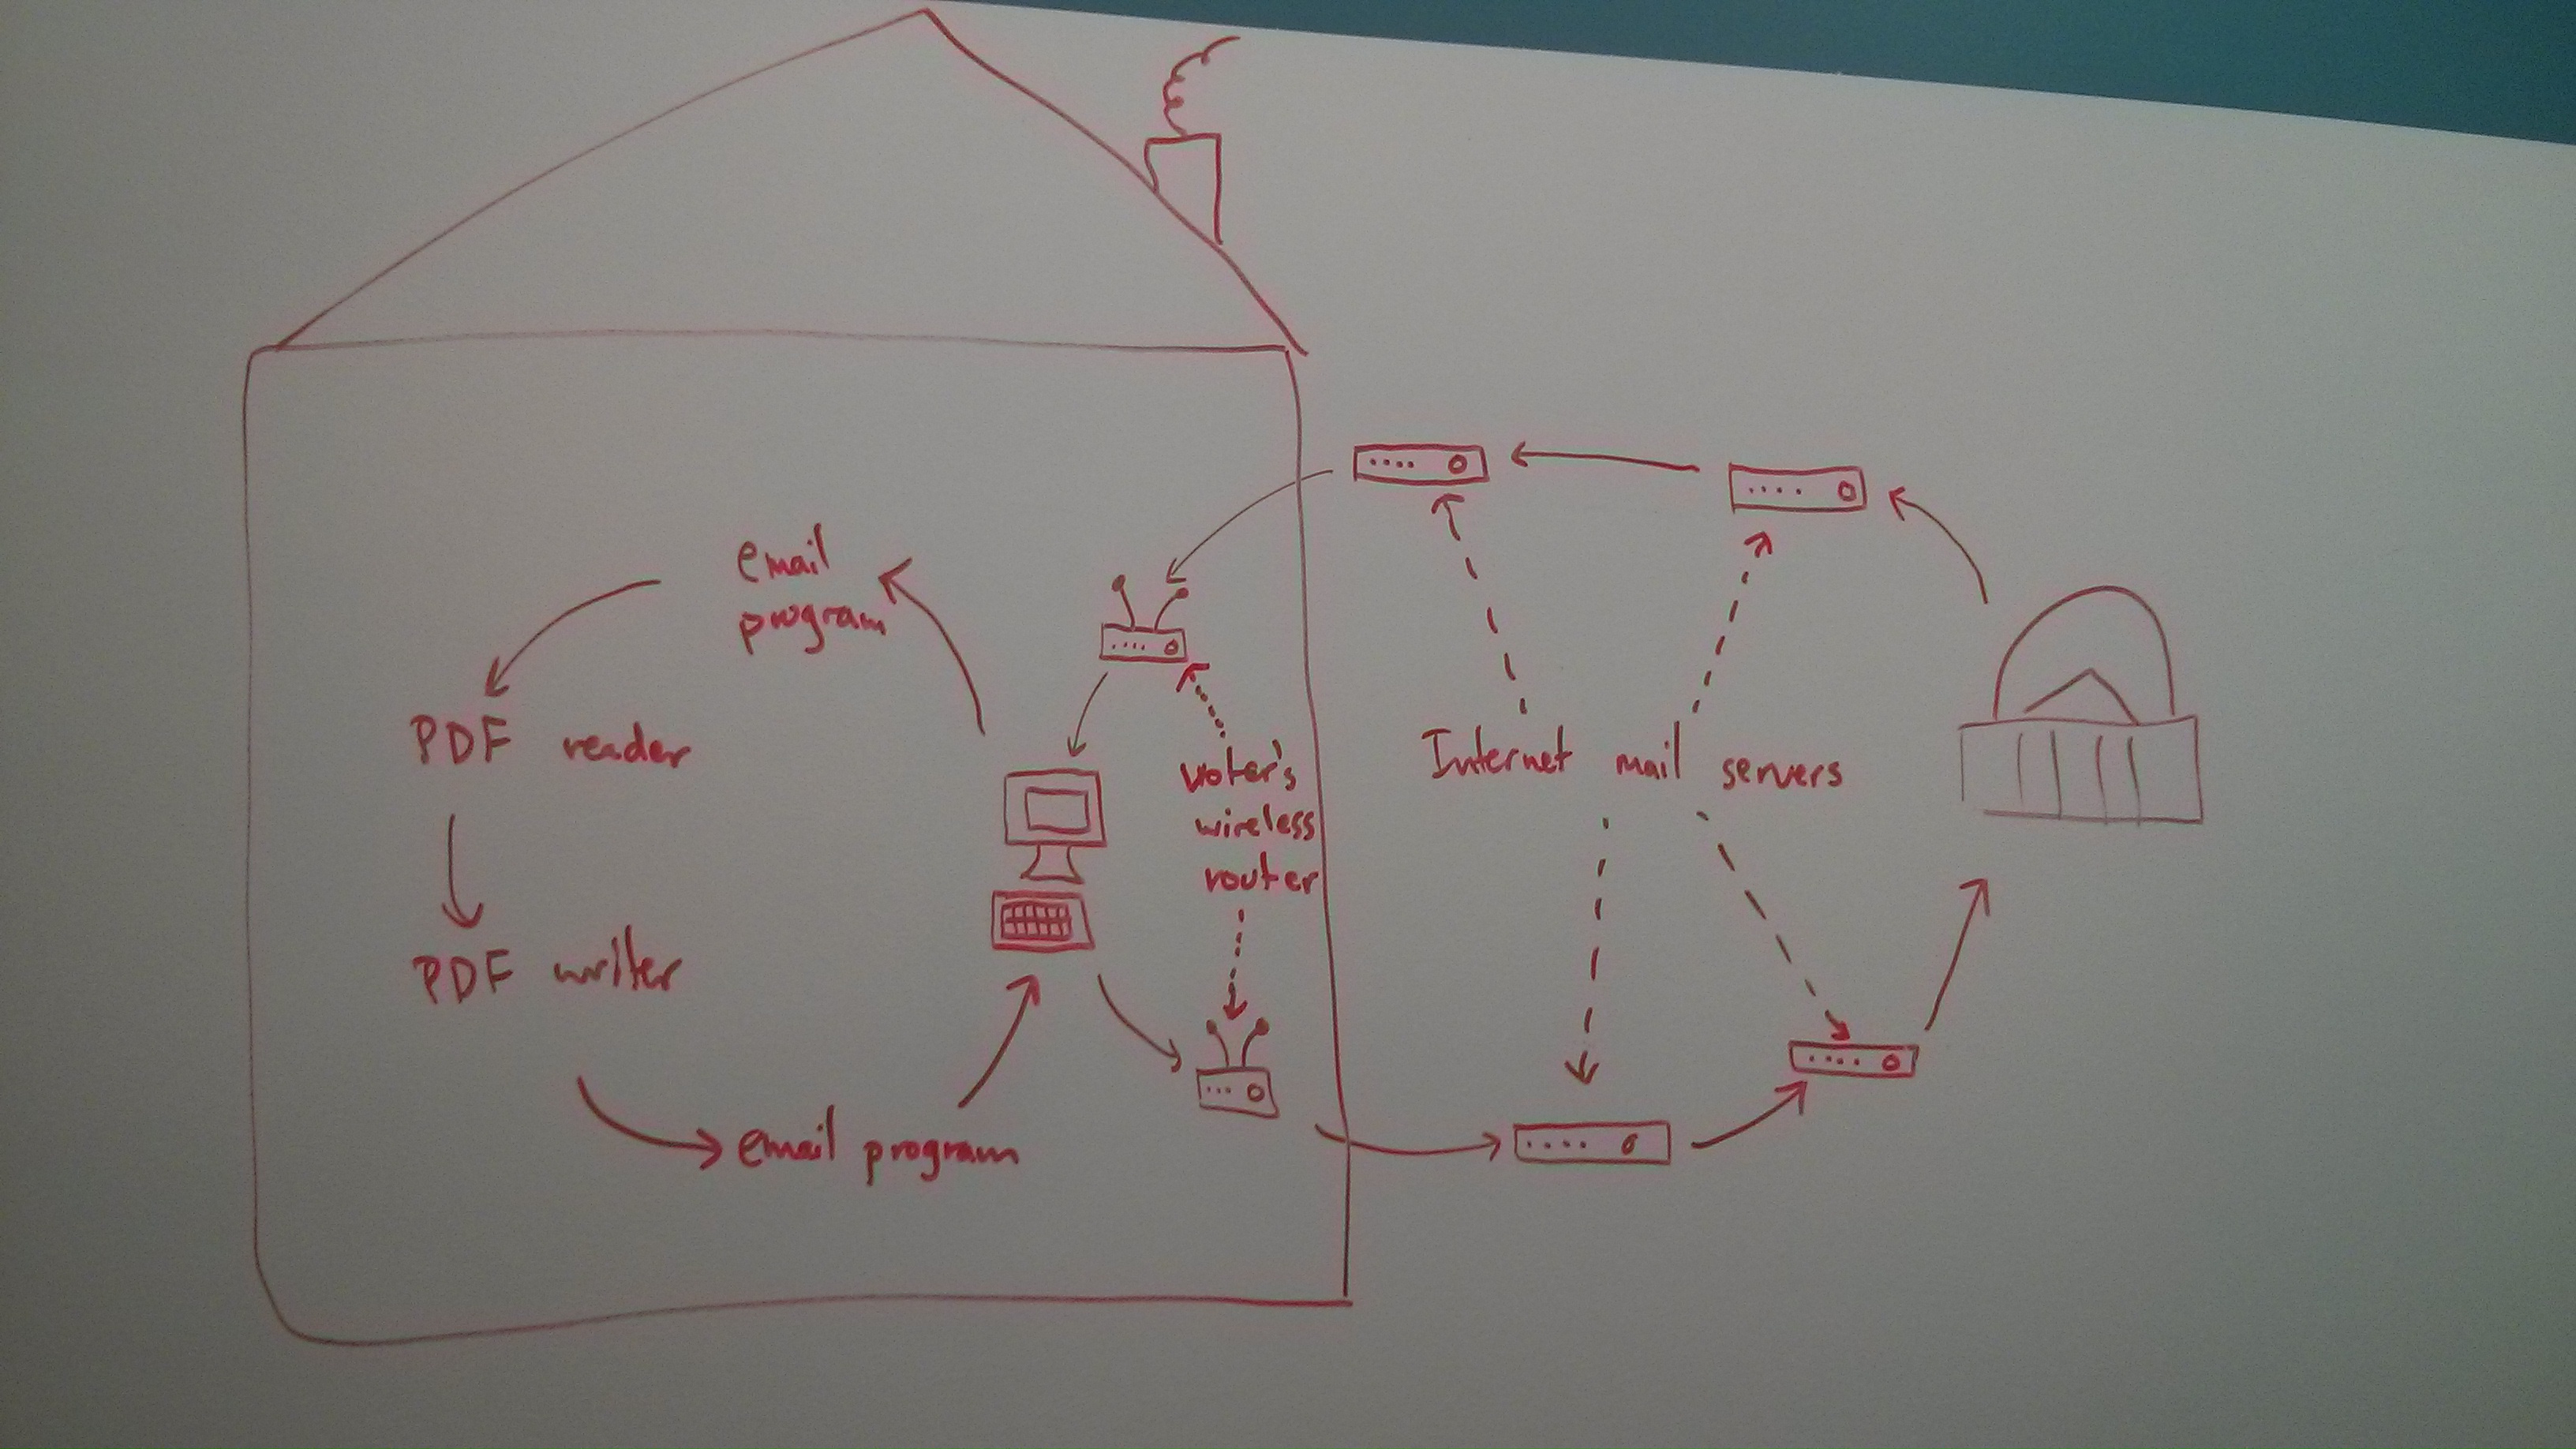 email
program
PDF reader
PDF writer
email program
voter's
wireless
router
Internet mail servers